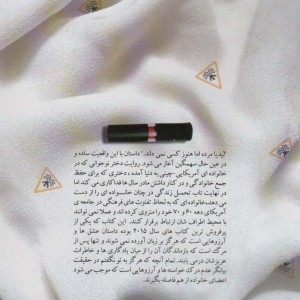 "لیدیا مرده اما هنوز کسی نمی داند." داستان با این واقعیت ساده و
در عین حال سهمگین آغاز می شود. روایت دختر نوجوانی که در
خانواده ای آمریکایی-چینی به دنیا آمده دختری که برای حفظ
جمع خانوادگی و در کنار داشتن مادر سال ها فداکاری می کند اما
در نهایت تاب تحمل زندگی در چنان خانواده ای را از دست
می دهد، خانواده ای که به لحاظ تفاوت های فرهنگی در جامعه ی
آمریکای دهه ۶۰ و ۷۰ خود را منزوی کرده اند و عملا نمی توانند
با محیط اطراف شان ارتباط برقرار کنند. این کتاب که یکی از
پرفروش ترین کتاب های سال ۲۰۱۵ بوده داستان عشق ها و
آرزوهایی است که هرگز بر زبان آورده نمی شوند و تنها پس از
مرگ است که بازماندگان آن را از میان یادگاری ها و خاطرات
عزیزشان در می یابند. تمام آنچه که هرگز به تو نگفتم در حقیقت
بیانگر عدم درک خواست ها و آرزوهایی است که موجب می شود
اعضای خانواده از هم فاصله بگیرند.